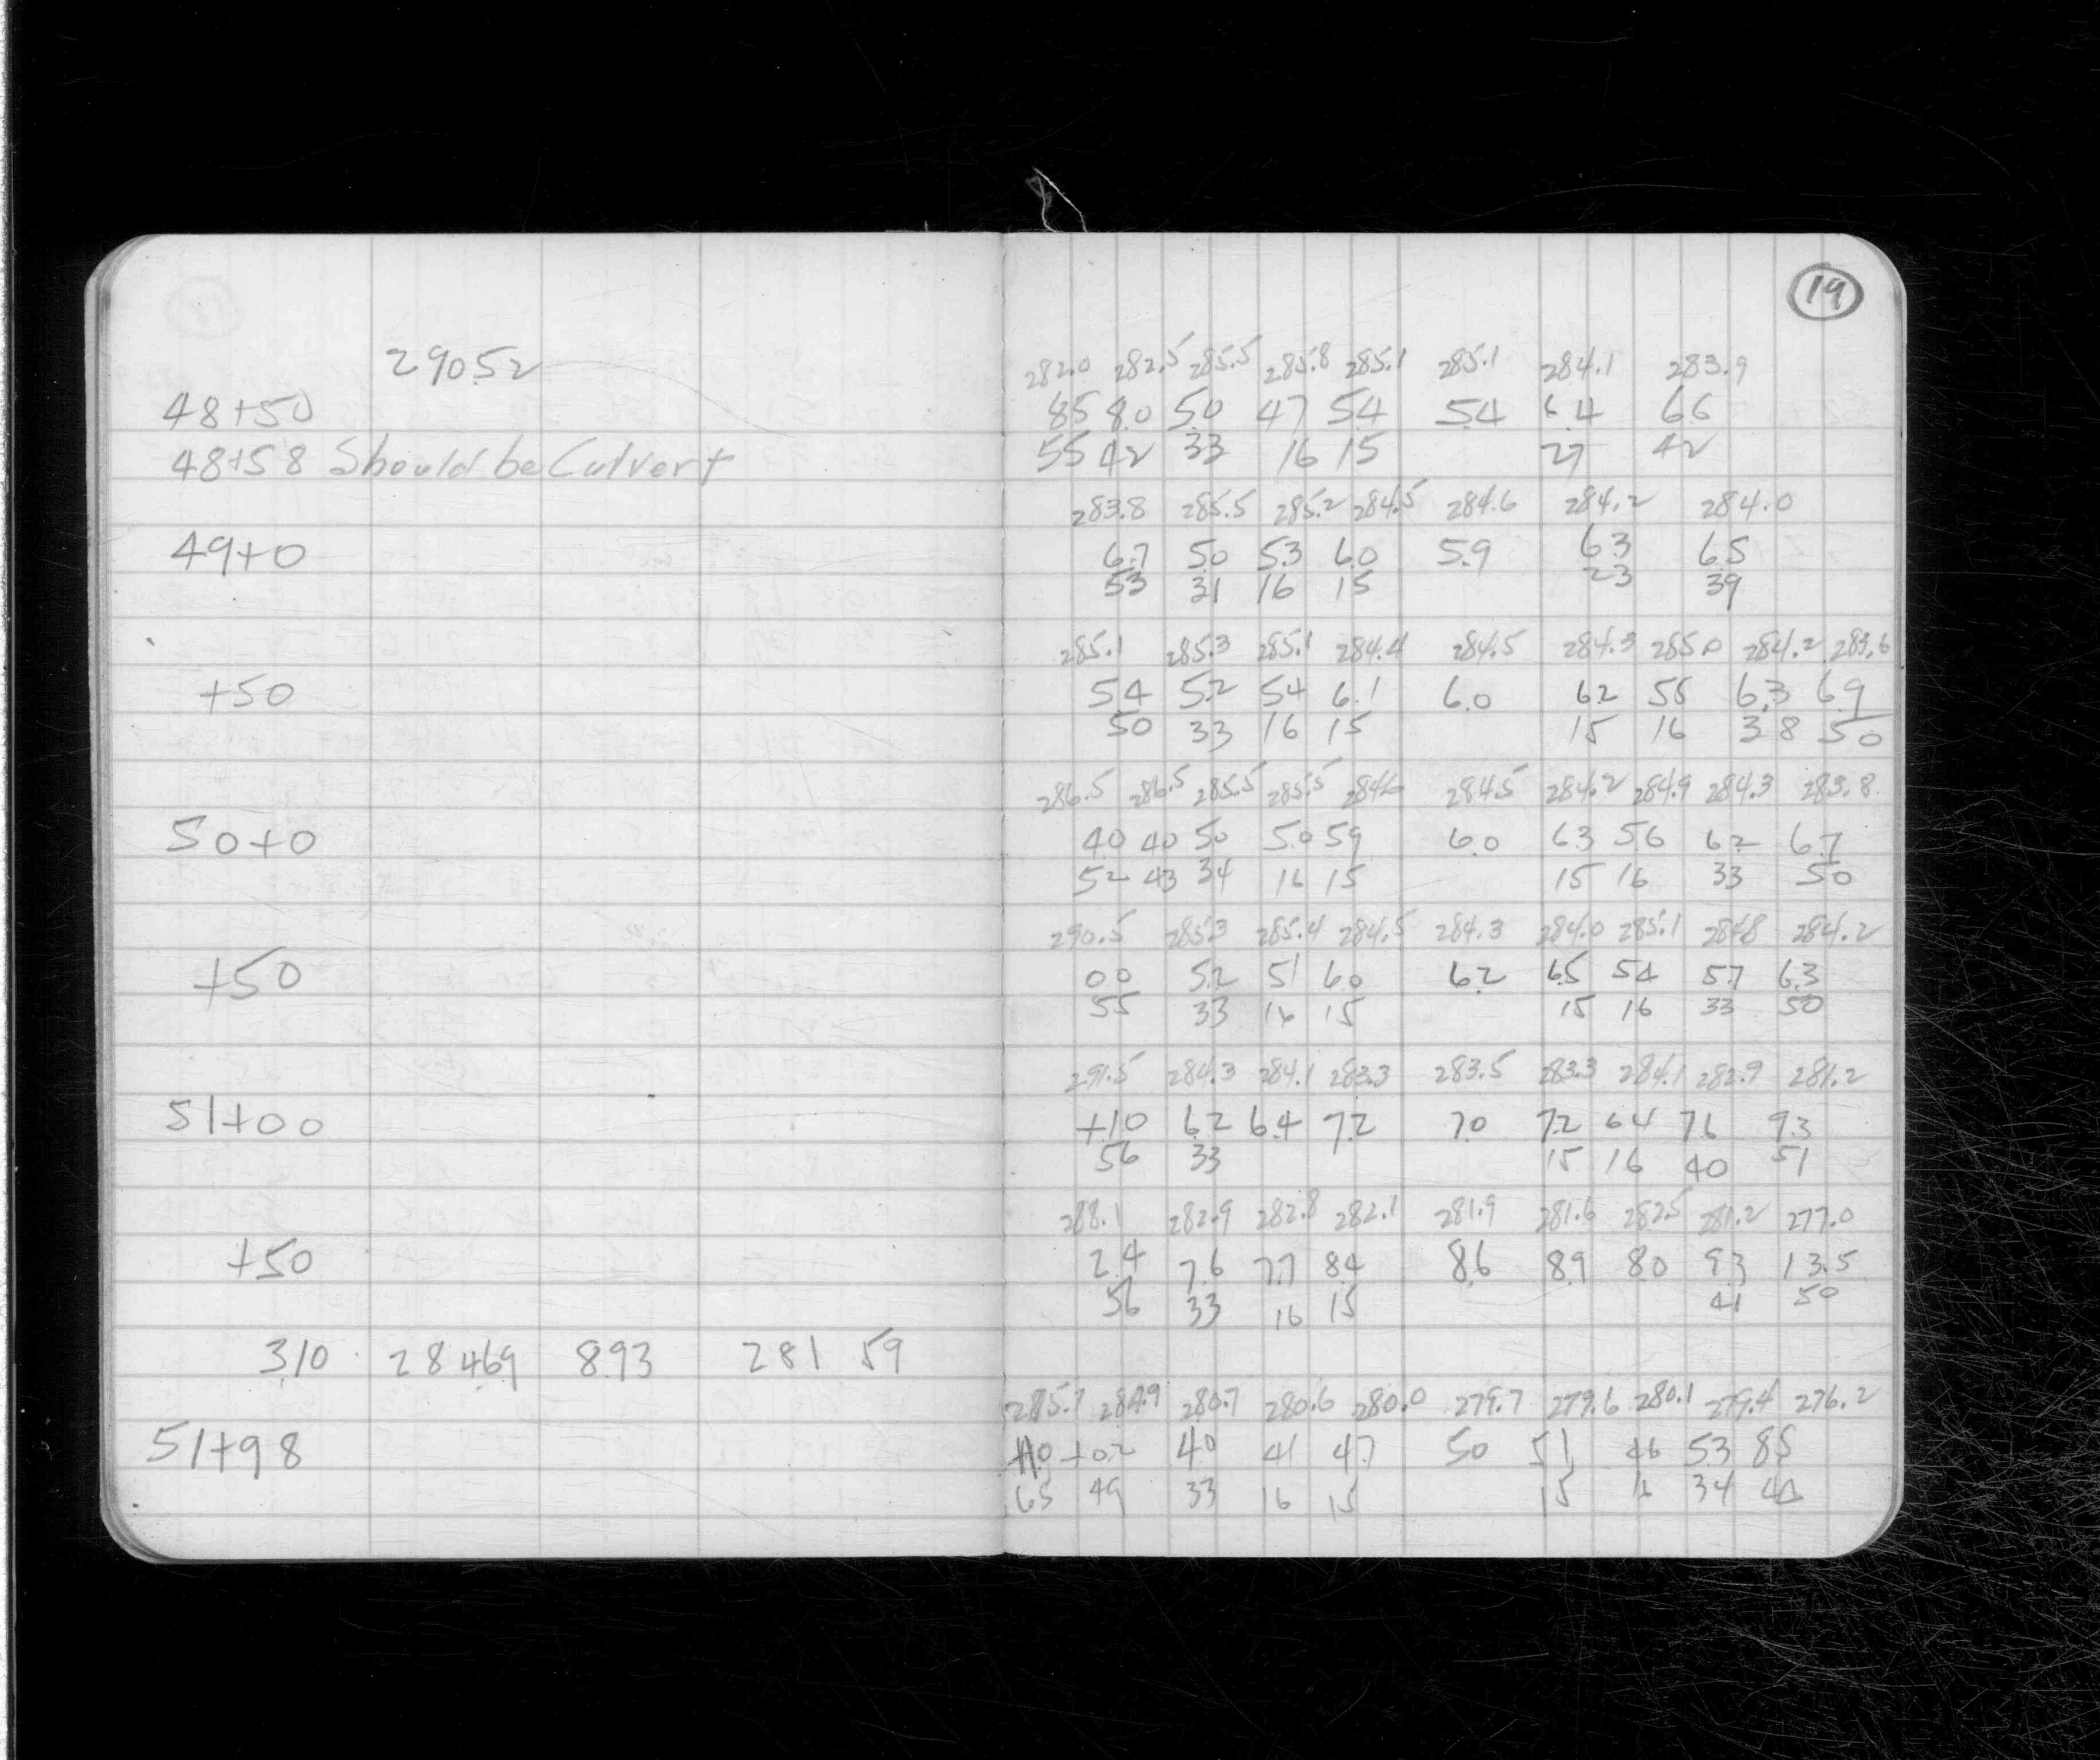 19
29052
282.0 282.5 285.5 285.8 285.1 285.1 284.1 283.9
48+50 85 8.0 5.0 47 54 5.4 64 66
48+58 Should be Culvert 55 42 33 16 15 27 42
283.8 285.5 285.2 284.5 284.6 284.2 284.0
49+0 6.7 50 53 60 5.9 63 65
53 31 16 15 23 39
285.1 285.3 285.1 284.4 284.5 284.3 285.0 284.2 283.6
+50 54 5.2 54 6.1 6.0 62 55 6.3 6.9
50 33 16 15 15 16 38 50
286.5 286.5 285.5 285.5 284.6 284.5 284.2 284.9 284.3 283.8
50+0 40 40 50 5.0 59 6.0 63 56 62 6.7
52 43 34 16 15 15 16 33 50
290.5 285.3 285.4 284.5 284.3 284.0 285.1 284.8 284.2
+50 00 5.2 51 60 62 65 54 57 63
55 33 16 15 15 16 33 50
291.5 284.3 284.1 283.3 283.5 283.3 284.1 282.9 281.2
51+00 +10 62 6.4 7.2 70 7.2 64 76 93
56 33 15 16 40 51
288.1 282.9 282.8 282.1 281.9 281.6 282.5 281.2 277.0
+50 2.4 7.6 7.7 84 86 89 80 93 13.5
56 33 16 15 41 50
3.10 284.69 8.93 281 59
285.7 284.9 280.7 280.6 280.0 279.7 279.6 280.1 279.4 276.2
51+98 +1.0 +02 40 41 47 50 51 46 53 85
65 49 33 16 15 15 16 34 42